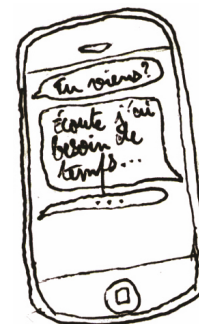 Tu viens?
Écoute j'ai
besoin de
temps...
...